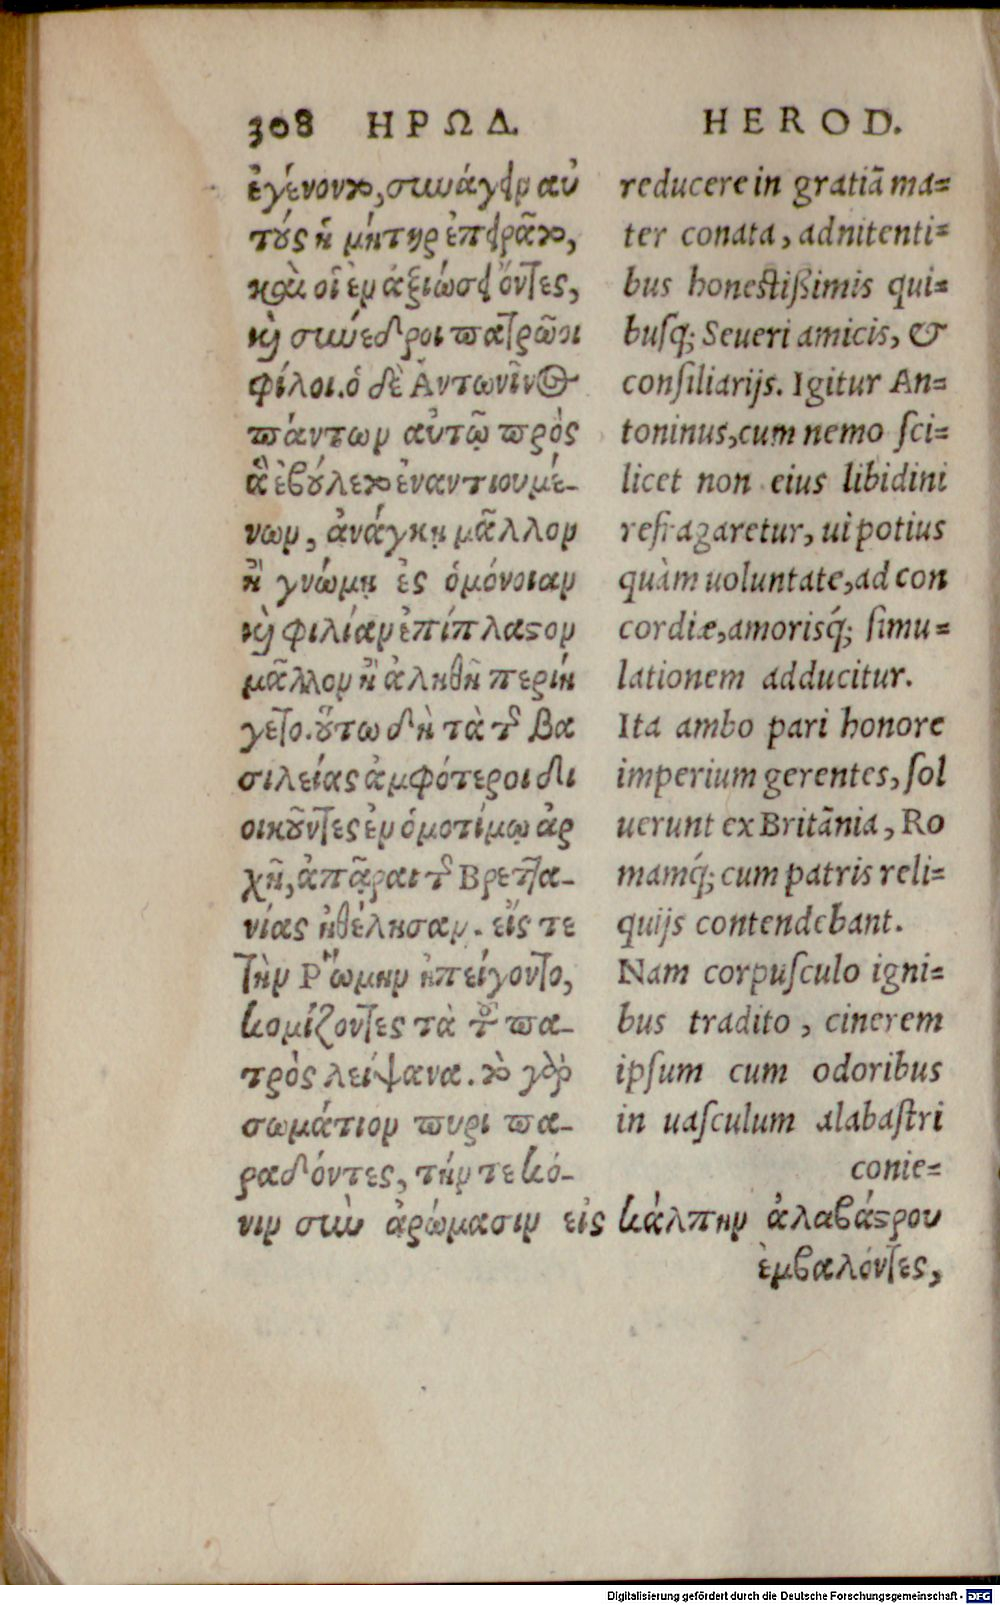 308 ΗΡΩΔ.
ἐγένοντο, συνάγειν αὐ
τούς ἡ μήτηρ ἐπειρᾶτο,
καὶ οἱ ἐν ἀξιώσει ὄντες,
καὶ σιωέδροι πατρῶοι
φίλοι. ὁ δὲ Ἀντωνῖνος
πάντων αὐτῷ πρὸς
ἃ ἐβούλετο ἐναντιουμέ-
νων, ἀνάγκῃ μᾶλλον
ἢ γνώμῃ ἐς ὁμόνοιαν
καὶ φιλίαν ἐπίπλαστον
μᾶλλον ἢ ἀληθῆ περιή
γετο. οὕτω δὴ τὰ τῆς βα
σιλείας ἀμφότεροι δι
οικοῦντες ἐν ὁμοτίμῳ ἀρ
χῇ, ἀπᾶραι τῆς Βρεττα-
νίας ἠθέλησαν. εἴς τε
τὴν Ῥώμην ἠπείγοντο,
κομίζοντες τὰ τοῦ πα-
τρὸς λείψανα. τὸ γὰρ
σωμάτιον πυρι πα-
ραδόντες, τήν τε κό-
νιν σὺν ἀρώμασιν εἰς κάλπην ἀλαβάστρου
ἐμβαλόντες,
HEROD.
reducere in gratiã ma=
ter conata, adnitenti=
bus honestißimis qui=
busq́; Seueri amicis, &
consiliarijs. Igitur An=
toninus, cum nemo sci=
licet non eius libidini
refragaretur, ui potius
quàm uoluntate, ad con
cordiæ, amorisq́; simu=
lationem adducitur.
Ita ambo pari honore
imperium gerentes, sol
uerunt ex Britãnia, Ro
mamq́; cum patris reli=
quijs contendebant.
Nam corpusculo igni=
bus tradito, cinerem
ipsum cum odoribus
in uasculum alabastri
conie=
Digitalisierung gefördert durch die Deutsche Forschungsgemeinschaft - DFG